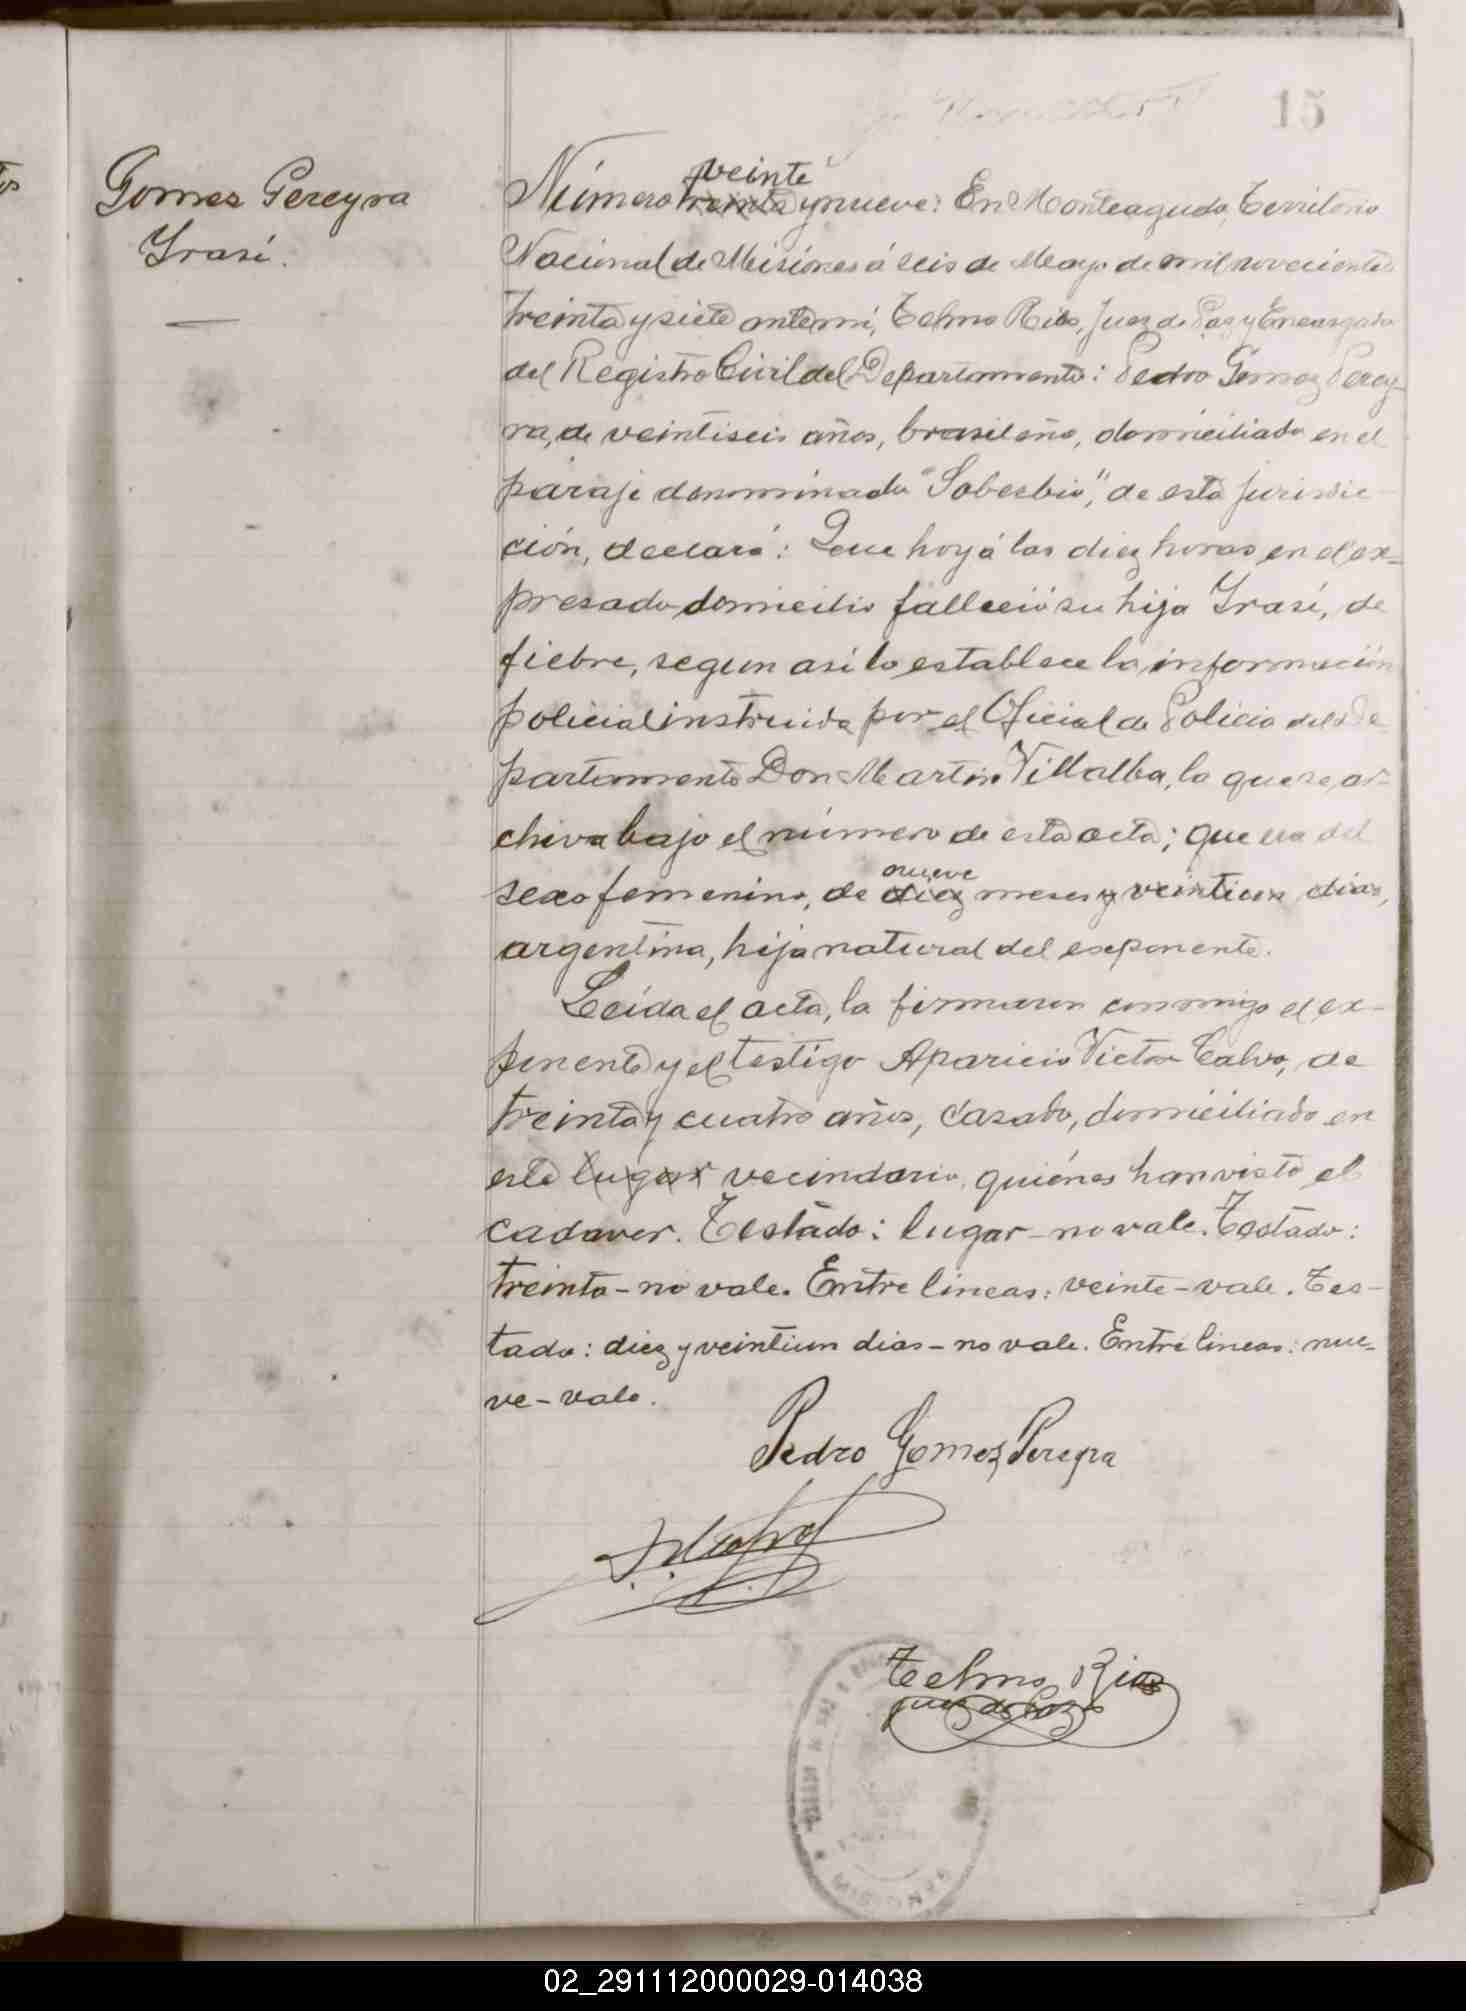 15
Gomez Pereyra
Irasi.
veinte
Número treinta y nueve: En Monteagudo, Territorio
Nacional de Misiones á seis de Mayo de mil novecientos
treinta y siete ante mí, Telmo Rios, Juez de Paz y Encargado
del Registro Civil del Departamento: Pedro Gomez Perey-
ra, de veintiseis años, brasileño, domiciliado en el
paraje denominado "Soberbio", de esta jurisdic-
ción, declaró: Que hoy á las diez horas en el ex-
presado domicilio falleció su hija Irasi, de
fiebre, segun asi lo establece la información
policial instruida por el Oficial de Policia del De-
partamento Don Martin Villalba, la que se ar-
chiva bajo el número de esta acta; que era del
nueve
sexo femenino, de diez meses y veintiun dias,
argentina, hija natural del exponente.
Leída el acta, la firmaron conmigo el ex-
ponente y el testigo Aparicio Victor Calvo, de
treinta y cuatro años, casado, domiciliado en
este lugar vecindario, quiénes han visto el
cadaver. Testado: lugar - no vale. Testado:
treinta - no vale. Entre lineas: veinte - vale. Tes-
tado: diez y veintiun dias - no vale. Entre lineas: nue-
ve - vale.
Pedro Gomez Pereyra
Telmo Rios
Juez de Paz
MISIONES
02_291112000029-014038